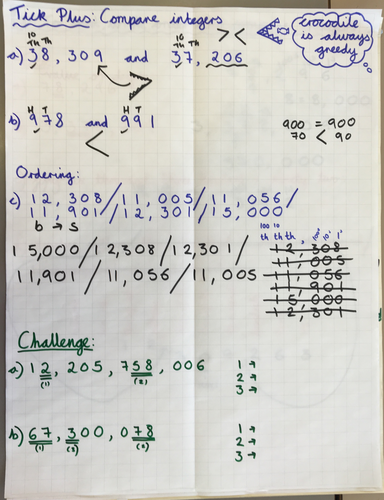 Tick Plus: Compare integers
> <
crocodile
is always
greedy
10
Th Th
10
Th Th
a) 38, 309 and 37, 206
>
H T H T
b) 978 and 991
<
900 = 900
70 < 90
Ordering:
c) 12, 308 / 11, 005 / 11, 056 /
11, 901 / 12, 301 / 15, 000
b → s
15,000 / 12,308 / 12,301 /
11,901 / 11, 056 / 11, 005
100 10
th th th, 100s 10s 1s
12, 308
11, 005
11, 056
11, 901
15, 000
12, 301
Challenge:
a) 12, 205, 758, 006
(1) (2)
1 →
2 →
3 →
b) 67, 300, 078
(1) (3) (2)
1 →
2 →
3 →